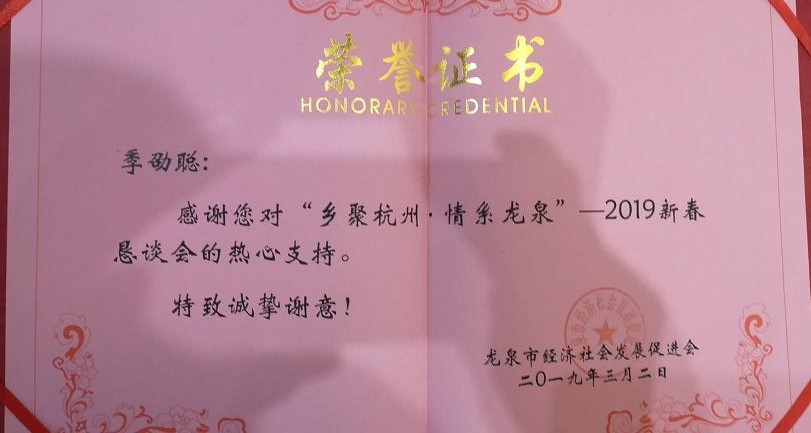 荣誉证书
HONORARY CREDENTIAL
季劭聪:
感谢您对“乡聚杭州·情系龙泉”—2019新春
恳谈会的热心支持。
特致诚挚谢意!
龙泉市经济社会发展促进会
二〇一九年三月二日